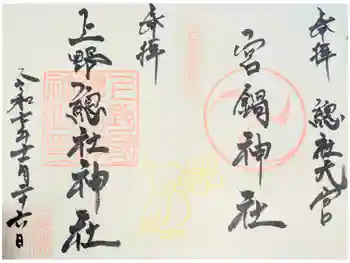 奉拝 總社大宮
宮鍋神社
奉拝
上野總社神社
令和七年十一月二十六日